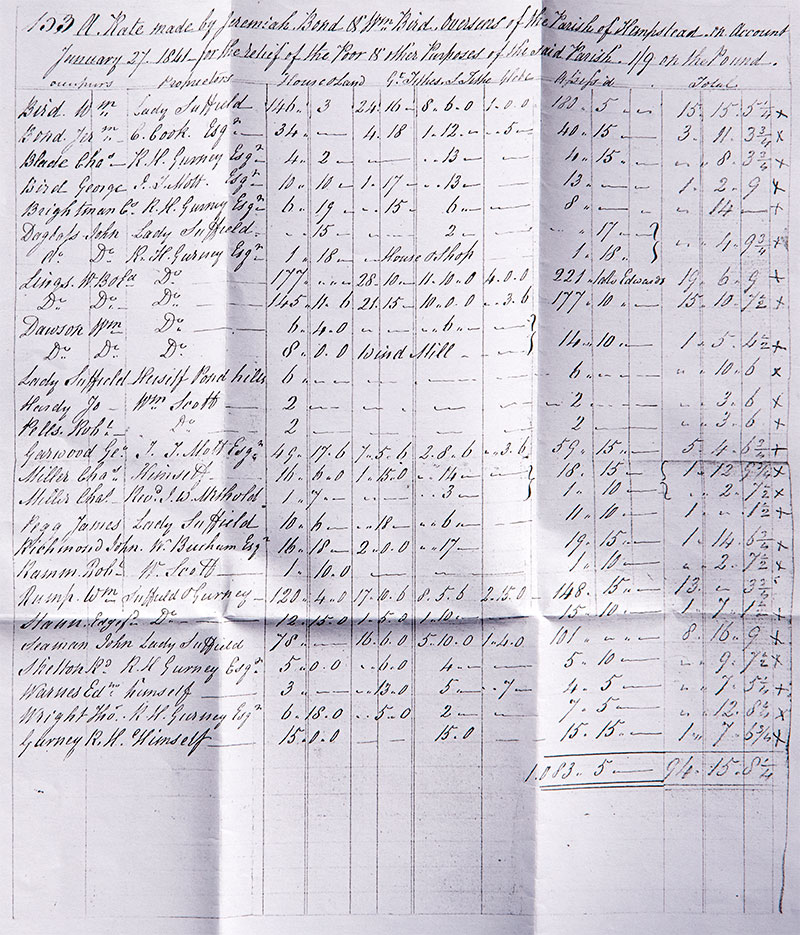 133 A Rate made by Jeremiah Bond & Wm Bird Overseers of the Parish of Hempstead on Account
January 27. 1841 for the relief of the Poor & other Purposes of the said Parish. 1/9 on the Pound.
Occupiers Proprietors House & Land Gt. Tithes S. Tithe Glebe Assess'd Total
Bird Wm Lady Suffield 146 „ 3 24 „ 16 8 „ 6 „ 0 1 „ 0 „ 0 182 „ 5 15 „ 15 „ 5 1/4 x
Bond Jerm C. Cook Esqr 34 4 „ 18 1 „ 12 „ 5 40 „ 15 3 „ 11 „ 3 3/4 x
Blade Chas R. H. Gurney Esqr 4 „ 2 „ 13 4 „ 15 „ 8 „ 3 3/4 x
Bird George J. J. Mott Esqr 10 „ 10 1 „ 17 „ 13 13 1 „ 2 „ 9 x
Brightman R. H. Gurney Esqr 6 „ 19 „ 15 6 8 „ 14 x
John Lady Suffield „ 15 2 „ 17
Do Do R. H. Gurney Esqr 1 „ 18 House & Shop 1 „ 18 „ 4 „ 9 3/4 x
Lings W. Do 177 28 „ 10 11 „ 10 „ 0 4 „ 0 „ 0 221 Edwards 19 „ 6 „ 9 x
Do Do Do 145 „ 11 „ 6 21 „ 15 10 „ 0 „ 0 „ 3 „ 6 177 „ 10 15 „ 10 „ 7 1/2 x
Dawson Wm Do 6 „ 4 „ 0 „ 6
Do Do Do 8 „ 0 „ 0 Wind Mill 14 „ 10 1 „ 5 „ 4 1/2 x
Lady Suffield Herself Pond hills 6 6 „ 10 „ 6 x
Hardy Jo Wm Scott 2 2 „ 3 „ 6 x
Pells Robt Do 2 2 „ 3 „ 6 x
Garwood Geo J. J. Mott Esqr 49 „ 17 „ 6 7 „ 5 „ 6 2 „ 8 „ 6 „ 3 „ 6 59 „ 15 5 „ 4 „ 6 3/4 x
Miller Chas Himself 16 „ 6 „ 0 1 „ 15 „ 0 „ 14 18 „ 15 1 „ 12 „ 9 3/4 x
Miller Chas Revd J. W. 1 „ 7 „ 3 1 „ 10 „ 2 „ 7 1/2 x
Pegg James Lady Suffield 10 „ 6 „ 18 „ 6 11 „ 10 1 „ „ 1 1/2 x
Richmond John W. Burham Esqr 16 „ 18 2 „ 0 „ 0 „ 17 19 „ 15 1 „ 14 „ 6 3/4 x
Ramm Robt W. Scott 1 „ 10 „ 0 1 „ 10 „ 2 „ 7 1/2 x
Rump Wm Suffield & Gurney 120 „ 4 „ 0 17 „ 0 „ 6 8 „ 5 „ 6 148 „ 15 13 „ „ 3 3/4
Do 12 „ 15 „ 0 1 „ 5 „ 0 1 „ 10 15 „ 10 1 „ 7 „ 1 1/2 x
Seaman John Lady Suffield 78 16 „ 6 „ 0 5 „ 10 „ 0 1 „ 4 „ 0 101 8 „ 16 „ 9 x
Skelton Rd R. H. Gurney Esqr 5 „ 0 „ 0 „ 6 „ 0 4 5 „ 10 „ 9 „ 7 1/2 x
Warnes Edm himself 3 „ 13 „ 0 5 „ 7 4 „ 5 „ 7 „ 5 1/4 x
Wright Tho. R. H. Gurney Esqr 6 „ 18 „ 0 „ 5 „ 0 2 7 „ 5 „ 12 „ 8 1/4 x
Gurney R. H. Himself 15 „ 0 „ 0 15 „ 0 15 „ 15 1 „ 7 „ 6 3/4 x
1,083 „ 5 94 „ 15 „ 8 1/4